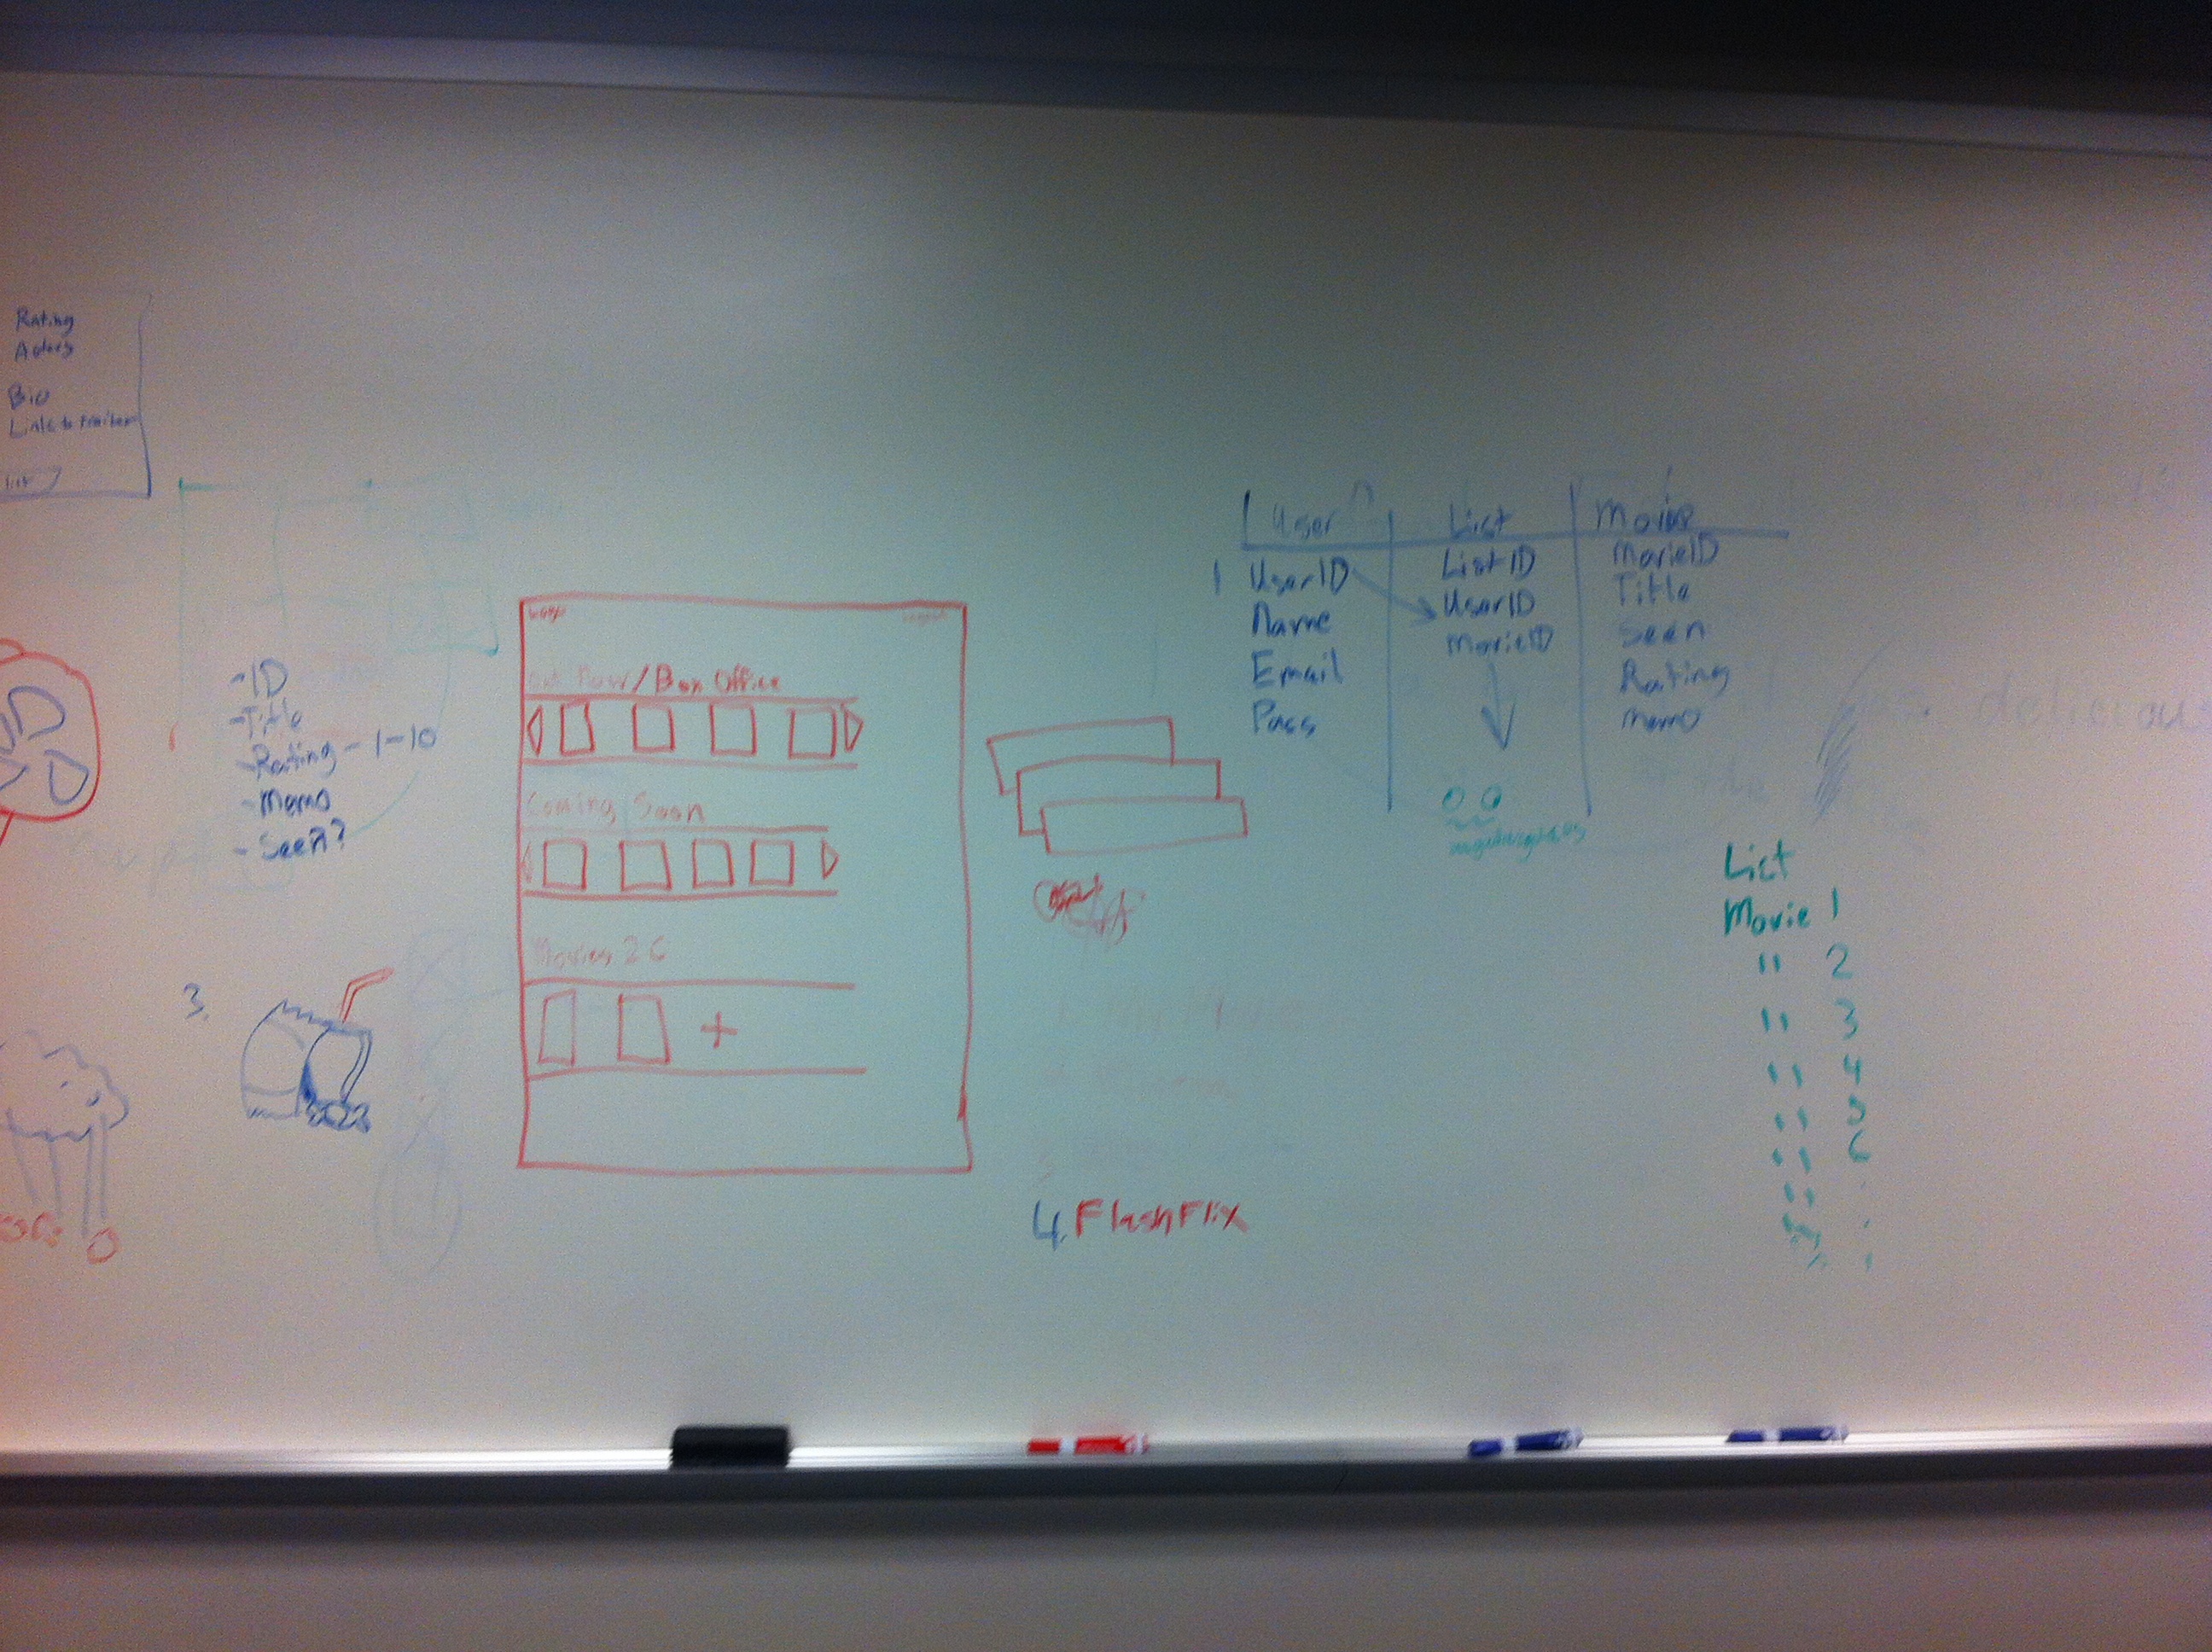 Rating
Actors
Bio
Link to trailer
list
-ID
-Title
-Rating - 1-10
-Memo
-Seen?
3.
Logo
Out Now/Box Office
Coming Soon
Movies 2 C
4. FlashFlix
User List Movie
1 UserID ListID MovieID
Name UserID Title
Email MovieID Seen
Pass Rating
Memo
List
Movie 1
" 2
" 3
" 4
" 5
" 6
"
delicious